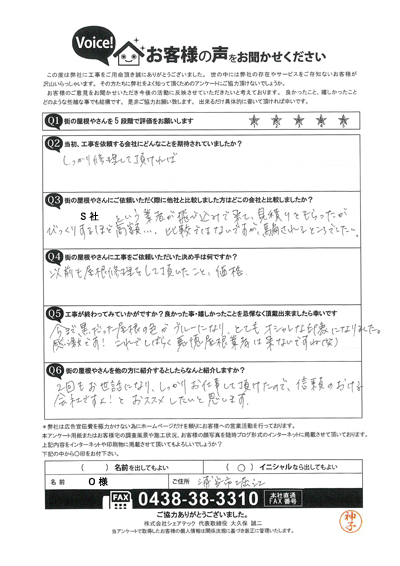 Voice!
お客様の声をお聞かせください
この度は弊社に工事をご用命頂き誠にありがとうございました。世の中には弊社の存在やサービスをご存知ないお客様が
沢山いらっしゃいます。その方たちに弊社をよく知って頂くためのアンケートにご協力頂けないでしょうか。
お客様のご意見をお聞かせいただき今後の活動に反映させていただきたいと考えております。良かったこと、嬉しかったこと
どのような些細な事でも結構です。是非ご協力お願い致します。出来るだけ具体的に書いて頂ければ幸いです。
Q1 街の屋根やさんを5段階で評価をお願いします
★ ★ ★ ★ ★
Q2 当初、工事を依頼する会社にどんなことを期待されていましたか?
しっかり修理して頂ければ
Q3 街の屋根やさんにご依頼いただく際に他社と比較しました方はどこの会社と比較しましたか?
S社 という業者が飛び込みで来て、見積りをもらったが
びっくりするほど高額…。比較ではないですが、騙されるところでした…。
Q4 街の屋根やさんに工事をご依頼いただいた決め手は何ですか?
以前も屋根修理をして頂いたこと、価格
Q5 工事が終わってみていかがですか?良かった事・嬉しかったことを忌憚なく頂戴出来ましたら幸いです
今まで黒だった屋根の色がグレーになり、とてもオシャレな印象になりました。
感激です!これでしばらく悪徳屋根業者は来ないですね(笑)
Q6 街の屋根やさんを他の方に紹介するとしたらなんと紹介しますか?
2回もお世話になり、しっかりお仕事して頂けたので、信頼のおける
会社ですよ!とおススメしたいと思います。
*弊社は広告宣伝費を極力かけない為にホームページだけを頼りにお客様への営業活動を行っております。
本アンケート用紙またはお客様宅の調査風景や施工状況、お客様の顔写真を随時ブログ形式のインターネットに掲載させて頂いております。
上記内容をインターネットや印刷物に掲載させて頂いてもよろしいでしょうか?
下記の中から〇印をお付下さい。
( ) 名前を出してもよい
(〇) イニシャルなら出してもよい
名前 O様
ご住所 浦安市堀江
FAX 0438-38-3310 本社直通FAX番号
ご協力ありがとうございました。
株式会社シェアテック 代表取締役 大久保 誠二
当アンケートで取得したお客様の個人情報は関係法規に基づき厳正に管理いたします。
神子